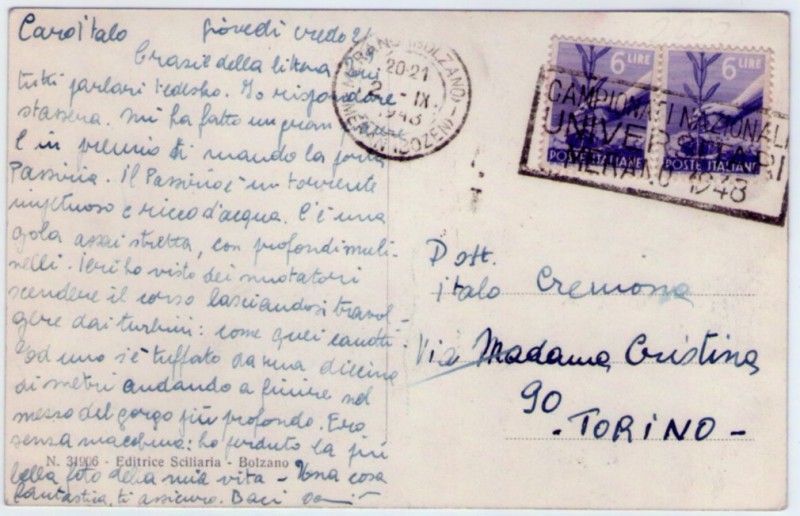 Caro Italo giovedì credo 2
Grazie della lettera
tutti parlari tedesko. Io rispondere
stasera. Mi ha fatto un gran
E in premio ti mando la foto
Passiria. Il Passirio è un torrente
impetuoso e ricco d'acqua. C'è una
gola assai stretta, con profondi muli-
nelli. Ieri ho visto dei nuotatori
scendere il corso lasciandosi travol-
gere dai turbini: come quei canotti.
Ed uno s'è tuffato da una diecina
di metri andando a finire nel
mezzo del gorgo più profondo. Ero
senza macchina: ho perduto la più
bella foto della mia vita - Una cosa
fantastica, ti assicuro. Baci
N. 31906 - Editrice Sciliaria - Bolzano
MERANO (BOLZANO)
20-21
2 - IX.
1948
MERAN (BOZEN)
6 LIRE
6 LIRE
POSTE ITALIANE
POSTE ITALIANE
CAMPIONATI NAZIONALI
UNIVERSITARI
MERANO 1948
Dott.
Italo Cremona
Via Madama Cristina
90
- TORINO -